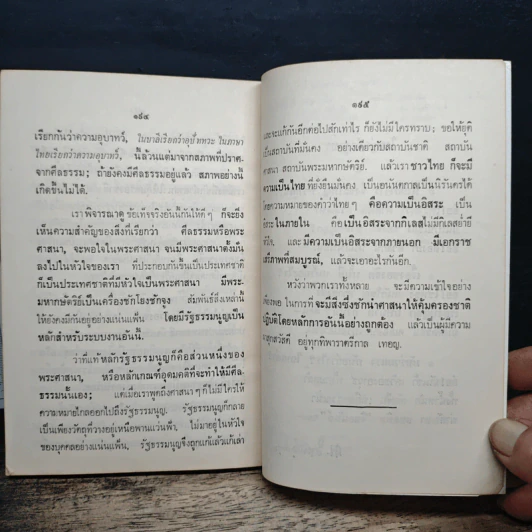 ๑๙๔
เรียกกันว่าความอุบาทว์, ในบาลีเรียกว่าอุปัททวะ ในภาษา
ไทยเรียกว่าความอุบาทว์, นี้ล้วนแต่มาจากสภาพที่ปราศ-
จากศีลธรรม; ถ้ายังคงมีศีลธรรมอยู่แล้ว สภาพอย่างนี้
เกิดขึ้นไม่ได้.
เราพิจารณาดู ข้อเท็จจริงอันนี้กันให้ดีๆ ก็จะยิ่ง
เห็นความสำคัญของสิ่งที่เรียกว่า ศีลธรรมหรือพระ
ศาสนา, จะพอใจในพระศาสนา จนมีพระศาสนาตั้งมั่น
ลงไปในหัวใจของเรา ที่ประกอบกันขึ้นเป็นประเทศชาติ
ก็เป็นประเทศชาติที่มีหัวใจเป็นพระศาสนา มีพระ-
มหากษัตริย์เป็นเครื่องชักโยงชักจูง สัมพันธ์สิ่งเหล่านี้
ให้ยังคงมีกันอยู่อย่างแน่นแฟ้น โดยมีรัฐธรรมนูญเป็น
หลักสำหรับระบบงานอันนี้.
ว่าที่แท้ หลักรัฐธรรมนูญก็คือส่วนหนึ่งของ
พระศาสนา, หรือหลักเกณฑ์อุดมคติที่จะทำให้มีศีล-
ธรรมนั่นเอง; แต่เมื่อเราพูดถึงศาสนาๆ ก็ไม่มีใครให้
ความหมายไกลออกไปถึงรัฐธรรมนูญ. รัฐธรรมนูญก็กลาย
เป็นเพียงวัตถุที่วางอยู่เหนือพานแว่นฟ้า, ไม่มาอยู่ในหัวใจ
ของบุคคลอย่างแน่นแฟ้น, รัฐธรรมนูญจึงถูกแก้แล้วแก้เล่า
๑๙๕
และจะแก้กันอีกต่อไปสักเท่าไร ก็ยังไม่มีใครทราบ; ขอให้ยุติ
เป็นสถาบันที่มั่นคง อย่างเดียวกับสถาบันชาติ สถาบัน
ศาสนา สถาบันพระมหากษัตริย์. แล้วเรา ชาวไทย ก็จะมี
ความเป็นไทย ที่ยั่งยืนมั่นคง เป็นอนันตกาลเป็นนิรันดรได้
โดยความหมายของคำว่าไทยๆ คือความเป็นอิสระ เป็น
อิสระในภายใน คือเป็นอิสระจากกิเลส ไม่มีกิเลสย่ำยี
หัวใจ, และ มีความเป็นอิสระจากภายนอก มีเอกราช
เสรีภาพที่สมบูรณ์, แล้วจะเอาอะไรกันอีก.
หวังว่าพวกเราทั้งหลาย จะมีความเข้าใจอย่าง
เพียงพอ ในการที่ จะมีสิ่งซึ่งชักนำศาสนาให้คุ้มครองชาติ
ปฏิบัติโดยหลักการอันนี้อย่างถูกต้อง แล้วเป็นผู้มีความ
ผาสุกสวัสดี อยู่ทุกทิพาราตรีกาล เทอญ.